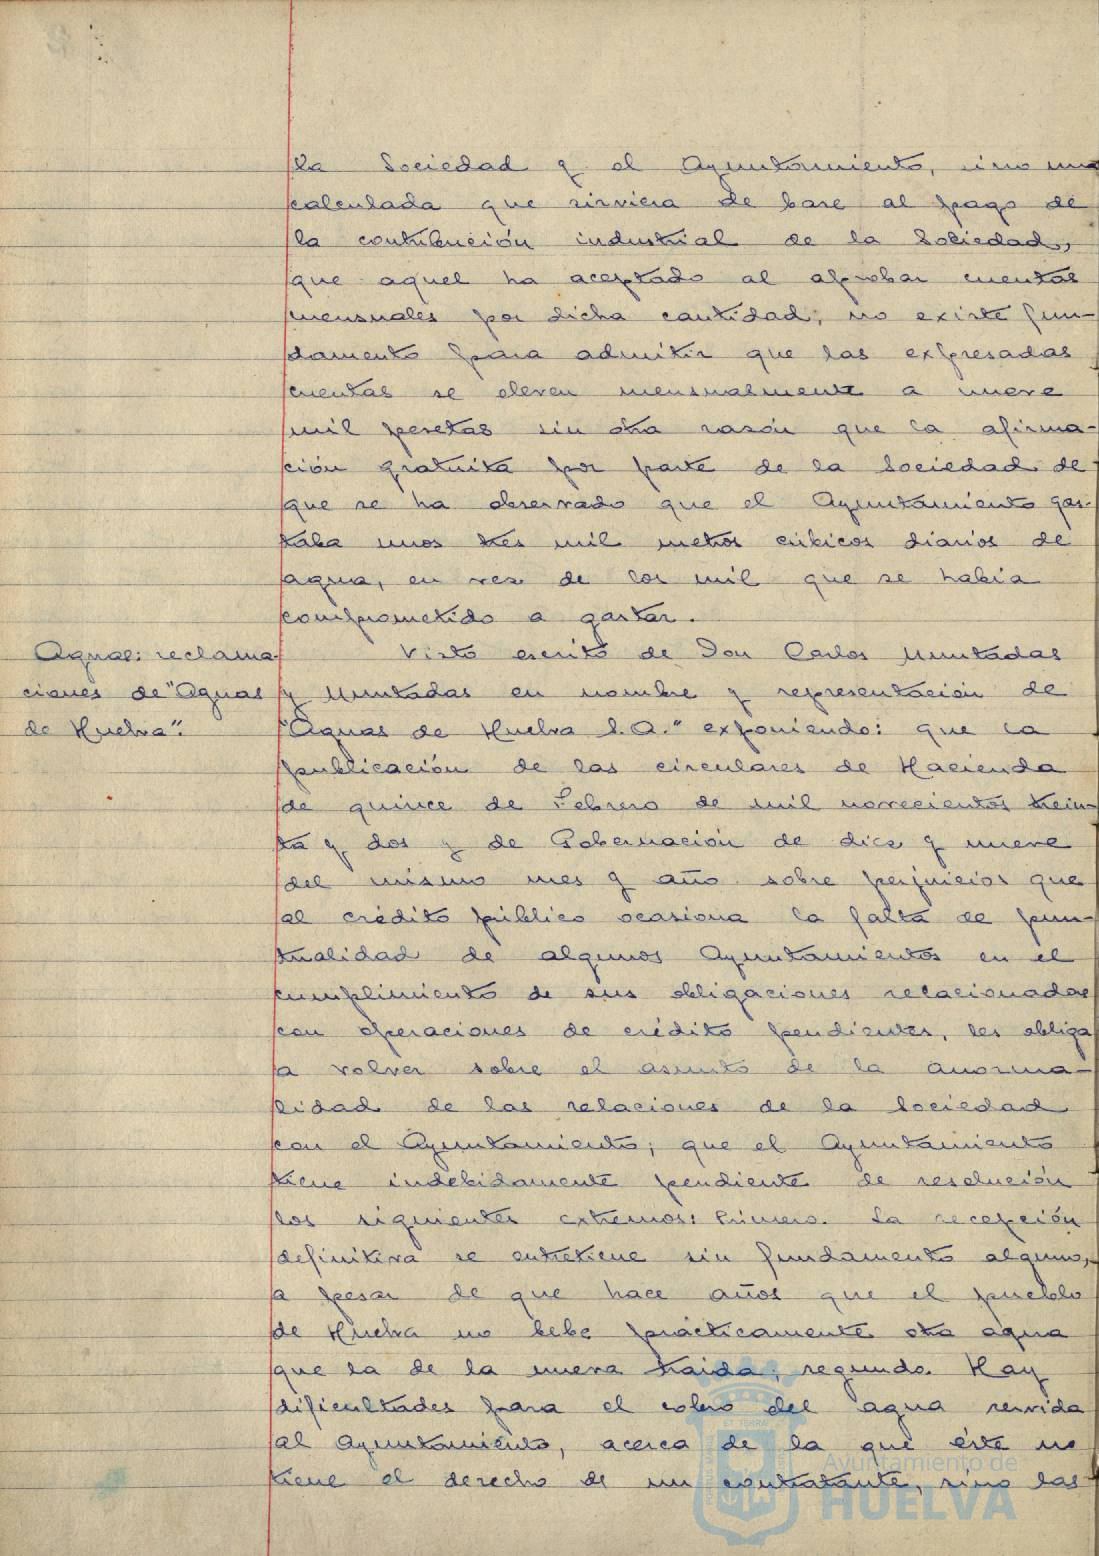 la Sociedad y el Ayuntamiento, sino una
calculada que sirviera de base al pago de
la contribución industrial de la Sociedad,
que aquel ha aceptado al aprobar cuentas
mensuales por dicha cantidad; no existe fun-
damento para admitir que las expresadas
cuentas se eleven mensualmente a nueve
mil pesetas sin otra razón que la afirma-
ción gratuita por parte de la Sociedad de
que se ha observado que el Ayuntamiento gas-
taba unos tres mil metros cúbicos diarios de
agua, en vez de los mil que se había
comprometido a gastar.
Aguas: reclama-
ciones de "Aguas
de Huelva".
Visto escrito de Don Carlos Muntadas
y Muntadas en nombre y representación de
"Aguas de Huelva S.A." exponiendo: que la
publicación de las circulares de Hacienda
de quince de Febrero de mil novecientos trein-
ta y dos y de Gobernación de diez y nueve
del mismo mes y año sobre perjuicios que
al crédito público ocasiona la falta de pun-
tualidad de algunos Ayuntamientos en el
cumplimiento de sus obligaciones relacionadas
con operaciones de crédito pendientes, les obliga
a volver sobre el asunto de la anorma-
lidad de las relaciones de la Sociedad
con el Ayuntamiento; que el Ayuntamiento
tiene indebidamente pendiente de resolución
los siguientes extremos: Primero. La recepción
definitiva se entretiene sin fundamento alguno,
a pesar de que hace años que el pueblo
de Huelva no bebe prácticamente otra agua
que la de la nueva traida; segundo. Hay
dificultades para el cobro del agua servida
al Ayuntamiento, acerca de la que éste no
tiene el derecho de un contratante, sino las
Ayuntamiento de
HUELVA